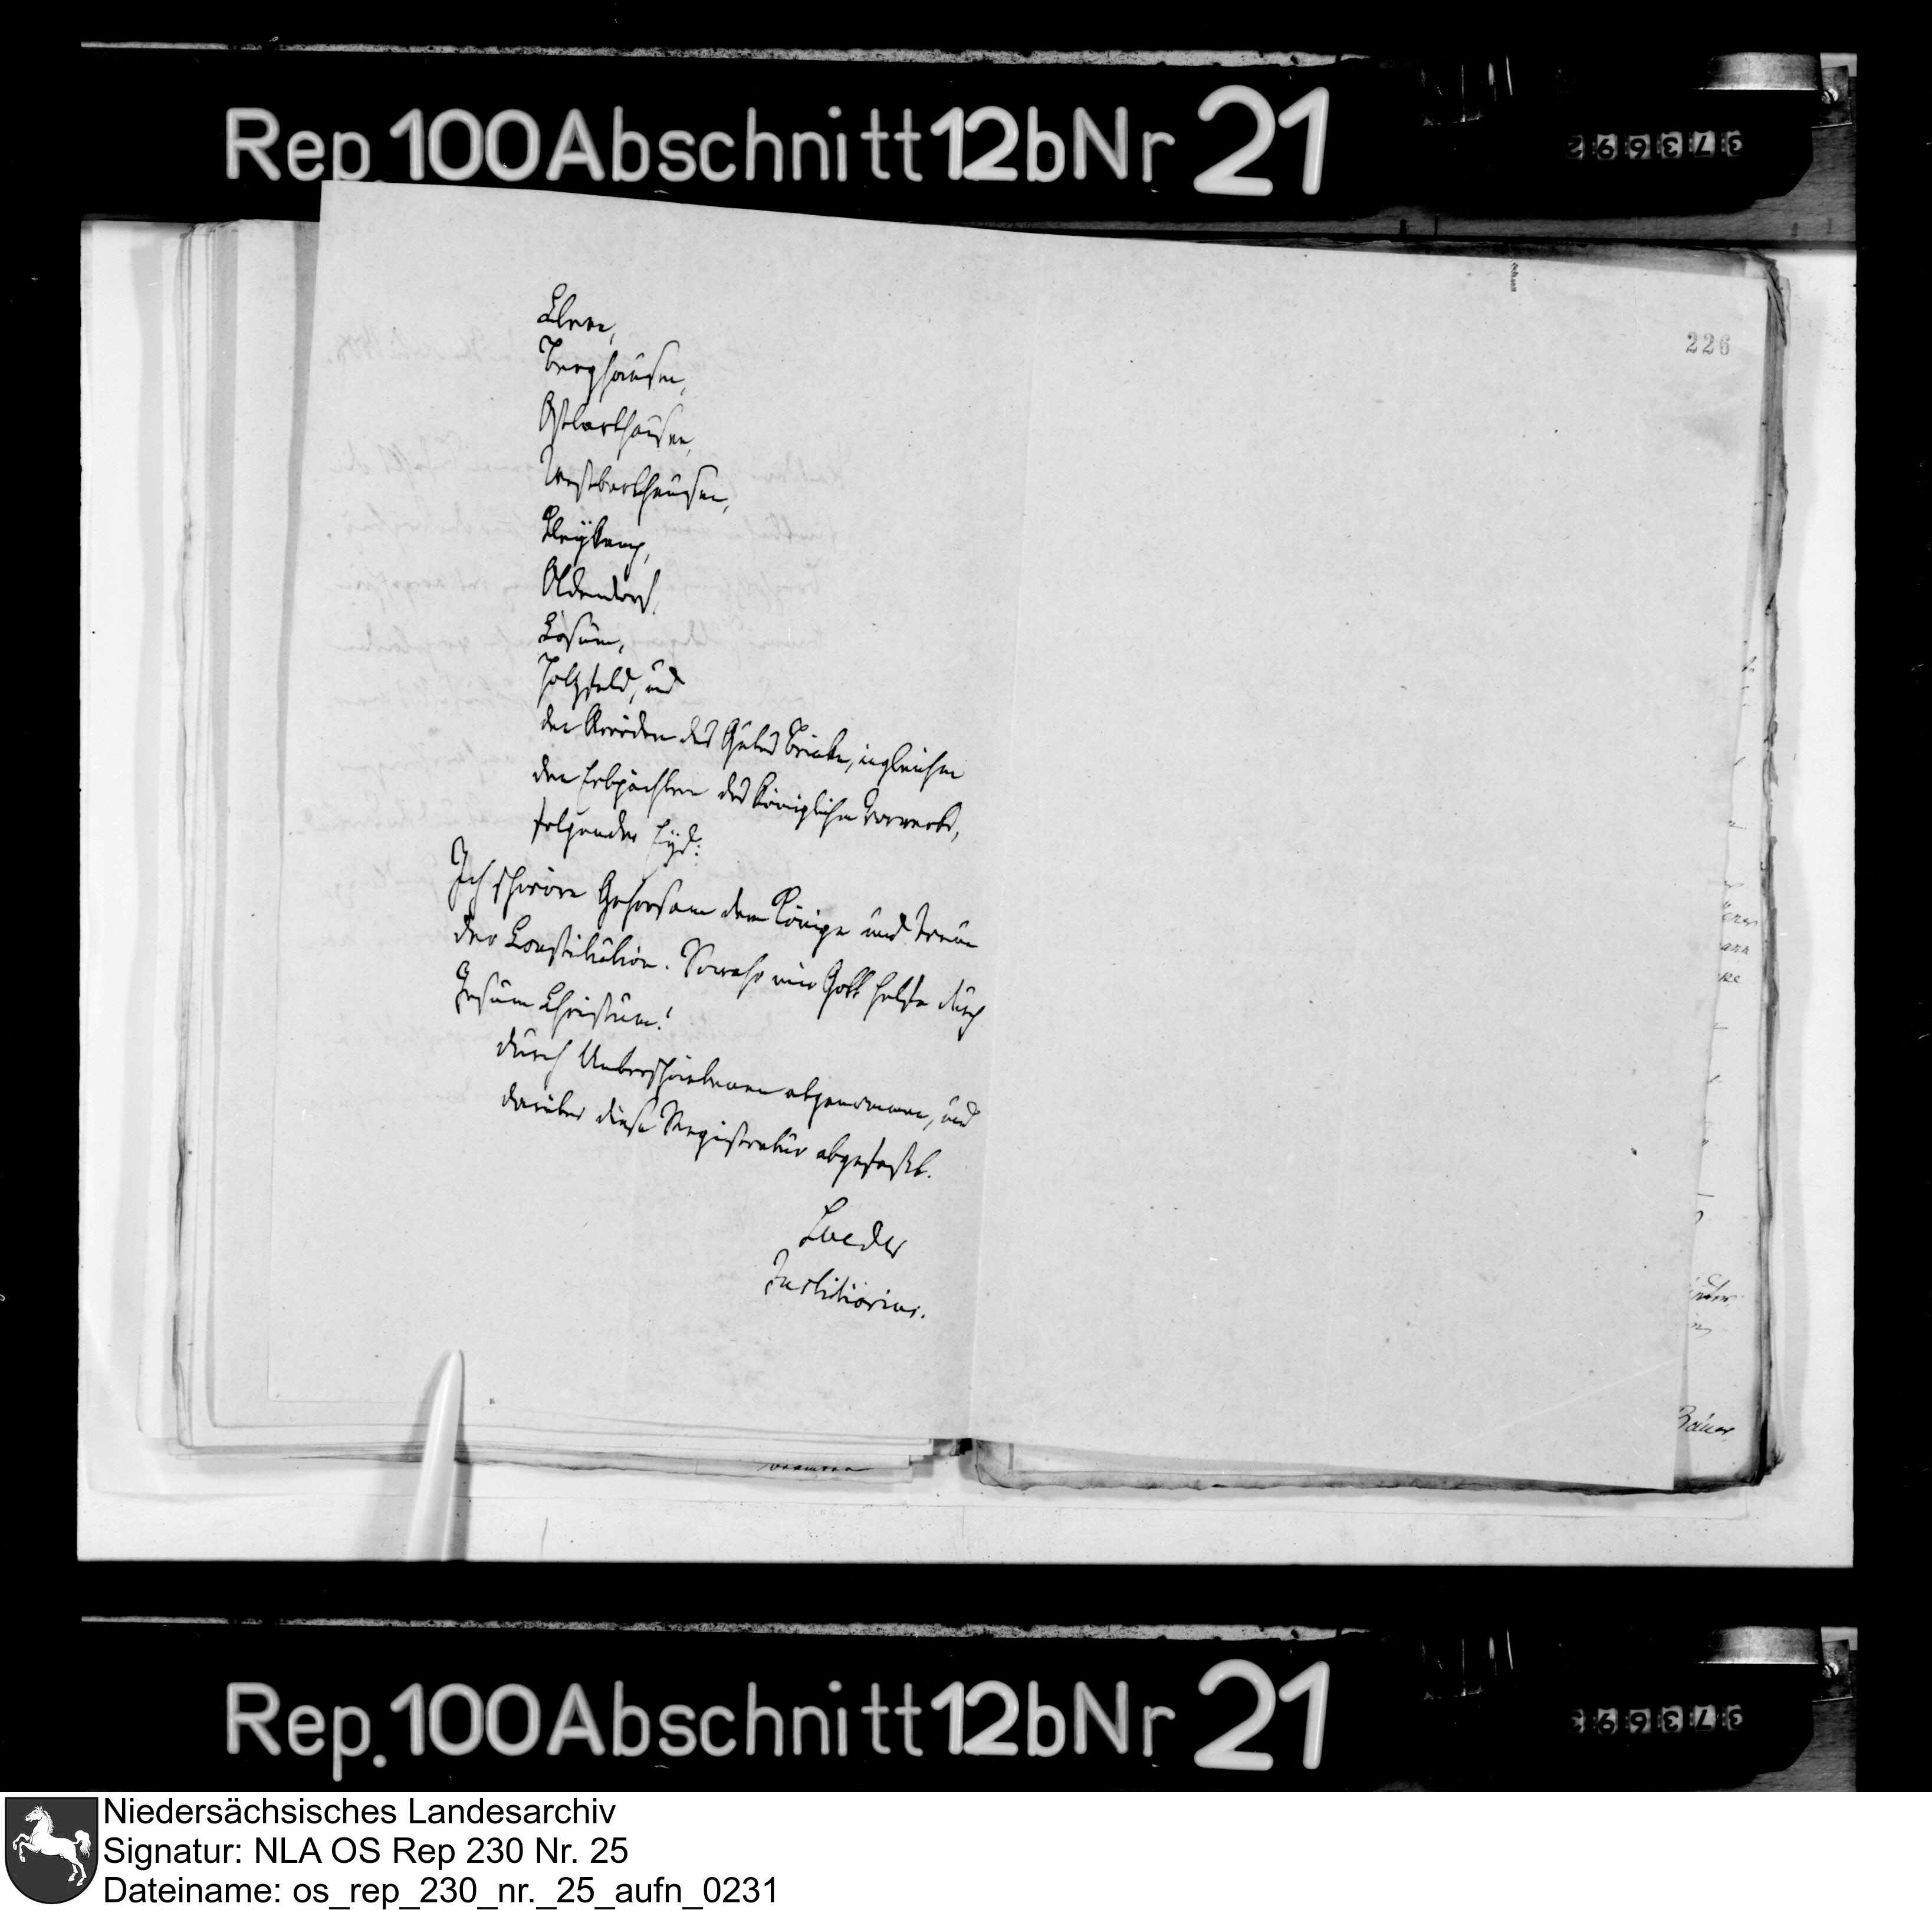 Rep. 100 Abschnitt 12b Nr 21
373692
226
Clever,
Berghausen,
Ostbarkhausen,
Westbarkhausen,
Kleykamp,
Oldendorf,
Cosum,
Holzfeld, und
der des Gutes Brinke, ingleichen
den Erbpächtern des Königlichen Vorwerks,
folgender Eyd:
Ich schwöre Gehorsam dem Könige und Treue
der Constitution. So wahr mir Gott helfe durch
Jesum Christum!
durch Unterschriebenen abgenommen, und
darüber diese Registratur abgefaßt.
Lueder
Justitiarius.
Rep. 100 Abschnitt 12b Nr 21
373693
Niedersächsisches Landesarchiv
Signatur: NLA OS Rep 230 Nr. 25
Dateiname: os_rep_230_nr._25_aufn_0231